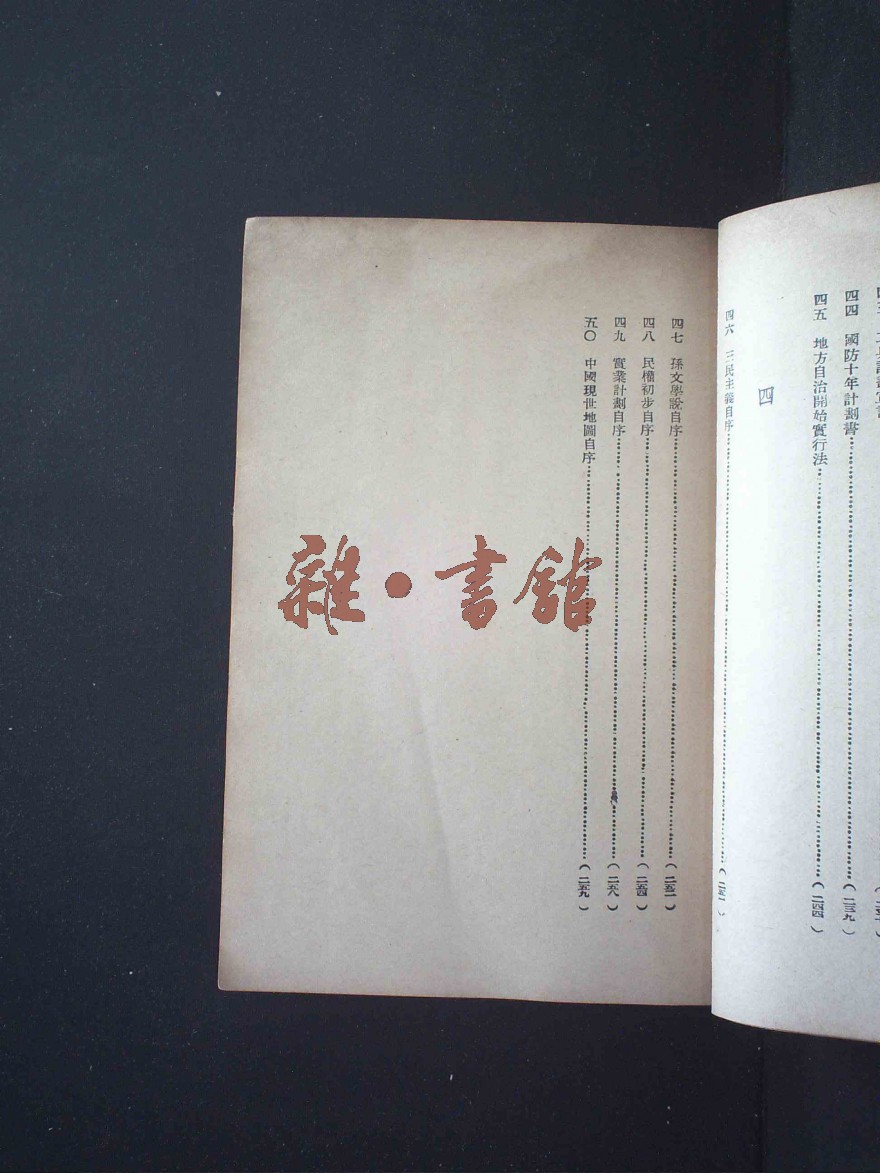 四四　國防十年計劃書……(二三九)
四五　地方自治開始實行法……(二四四)
四
四六　三民主義自序……(二五一)
四七　孫文學說自序……(二五二)
四八　民權初步自序……(二五四)
四九　實業計劃自序……(二五八)
五〇　中國現世地圖自序……(二五九)
雜・書館